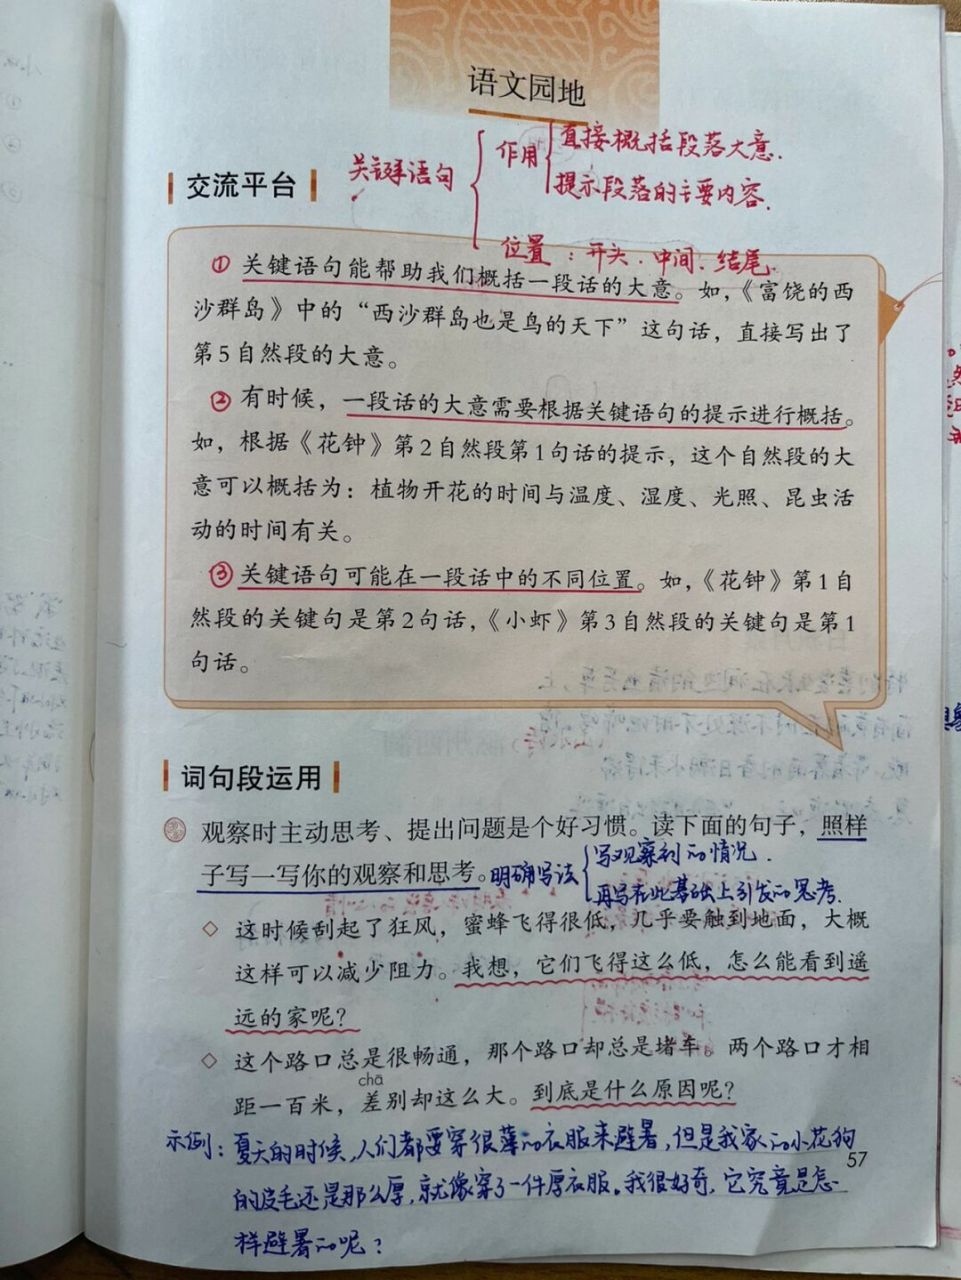 语文园地
交流平台
关键语句
作用
直接概括段落大意.
提示段落的主要内容.
位置：开头.中间.结尾.
① 关键语句能帮助我们概括一段话的大意。如，《富饶的西
沙群岛》中的“西沙群岛也是鸟的天下”这句话，直接写出了
第5自然段的大意。
② 有时候，一段话的大意需要根据关键语句的提示进行概括。
如，根据《花钟》第2自然段第1句话的提示，这个自然段的大
意可以概括为：植物开花的时间与温度、湿度、光照、昆虫活
动的时间有关。
③ 关键语句可能在一段话中的不同位置。如，《花钟》第1自
然段的关键句是第2句话，《小虾》第3自然段的关键句是第1
句话。
词句段运用
观察时主动思考、提出问题是个好习惯。读下面的句子，照样
子写一写你的观察和思考。
明确写法
写观察到的情况.
再写在此基础上引发的思考.
◇ 这时候刮起了狂风，蜜蜂飞得很低，几乎要触到地面，大概
这样可以减少阻力。我想，它们飞得这么低，怎么能看到遥
远的家呢？
◇ 这个路口总是很畅通，那个路口却总是堵车。两个路口才相
chā
距一百米，差别却这么大。到底是什么原因呢？
示例：夏天的时候,人们都要穿很薄的衣服来避暑,但是我家的小花狗
57
的皮毛还是那么厚,就像穿了一件厚衣服。我很好奇,它究竟是怎
样避暑的呢？